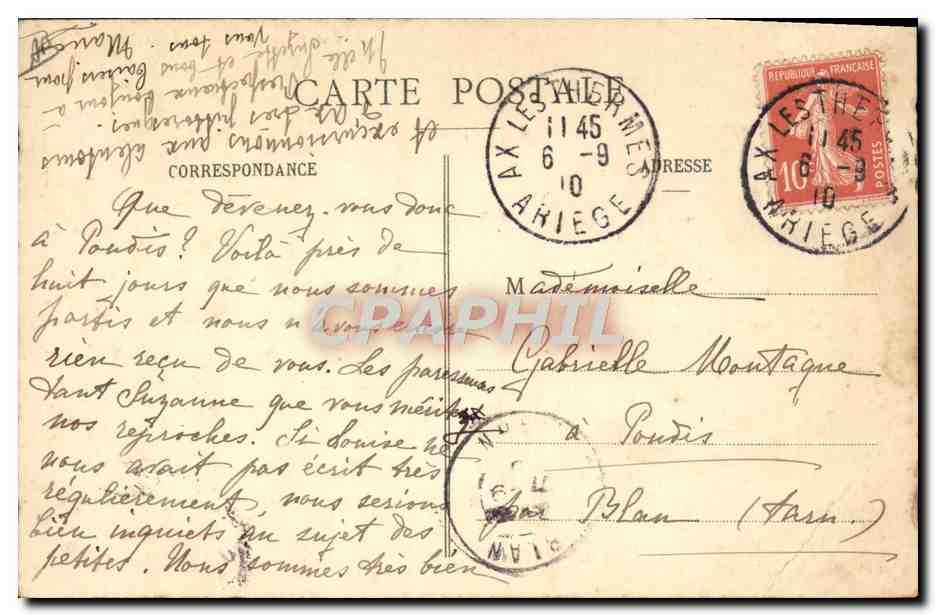 CARTE POSTALE
CORRESPONDANCE
ADRESSE
AX LES THERMES
11 45
6 -9
10
ARIEGE
REPUBLIQUE FRANÇAISE
10
POSTES
AX LES THERMES
11 45
6 -9
10
ARIEGE
Que dévenez-vous donc
à Poudis? Voilà près de
huit jours que nous sommes
partis et nous n'avons encore
rien reçu de vous. Les paresseuses
tant Suzanne que vous méritez
nos reproches. Si Louise ne
nous avait pas écrit très
régulièrement, nous serions
bien inquiets au sujet des
petites. Nous sommes très bien
et excursionnons aux alentours
très pittoresques.
Respectueux bonjour à
Melle Suzette et bons baisers pour
vous tous. Marie
Mademoiselle
Gabrielle Montagne
à Poudis
par Blan (Tarn.)
CPAPHIL